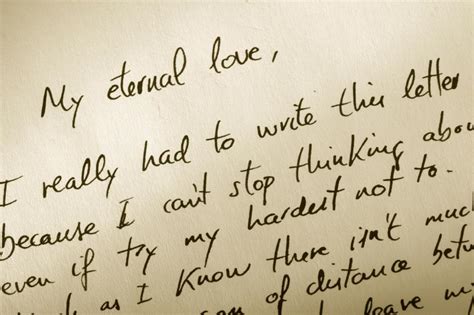 My eternal love,
I really had to write this letter
because I can't stop thinking abou
even if try my hardest not to.
as I know there isn't much
of distance betw
leave m